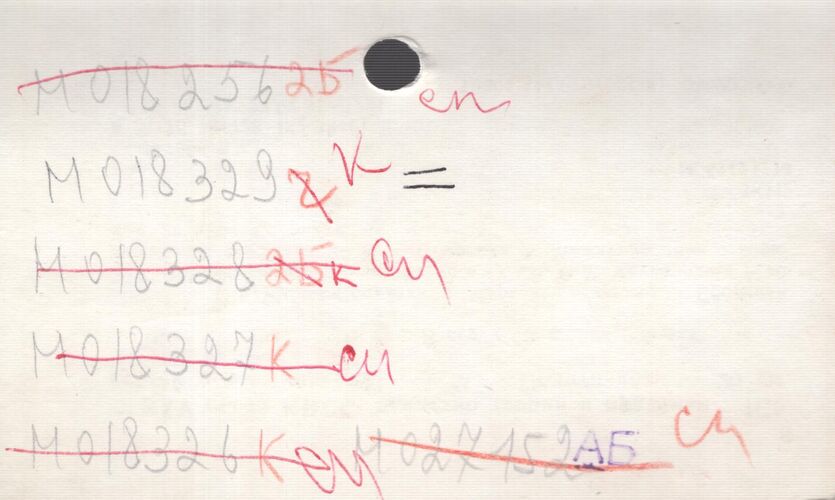 М018256 2Б сп
М018329 К =
М018328 2Б К сп
М018327 К сп
М018326 К сп М027152 АБ сп